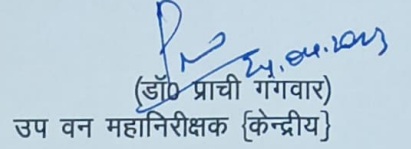 24.04.2023
(डॉ0 प्राची गंगवार)
उप वन महानिरीक्षक {केन्द्रीय}